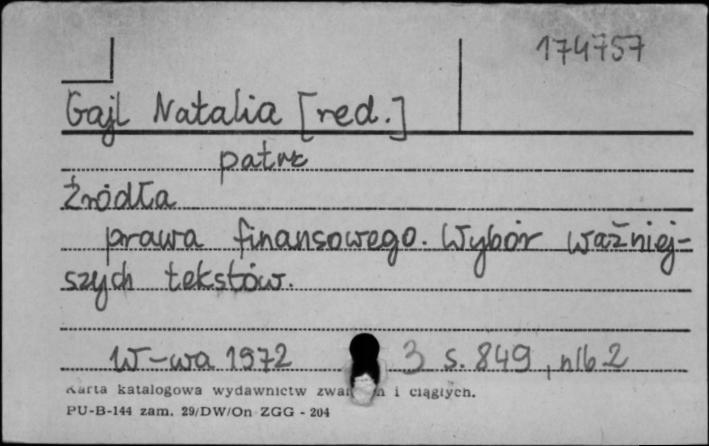 174757
Gajl Natalia [red.]
patrz
Źródła
prawa finansowego. Wybór ważniej-
szych tekstów.
W-wa 1972 3 s. 849, nlb. 2
Karta katalogowa wydawnictw i ciągłych.
PU-B-144 zam. 29/DW/On ZGG - 204